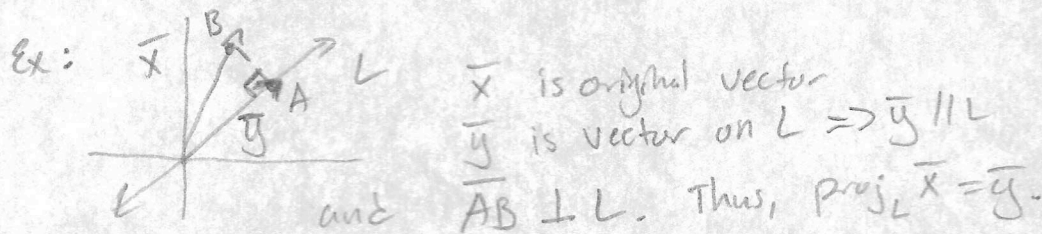 Ex: x̄ B L
A
ȳ
x̄ is original vector
ȳ is vector on L => ȳ // L
and A̅B̅ ⊥ L. Thus, proj_L x̄ = ȳ.